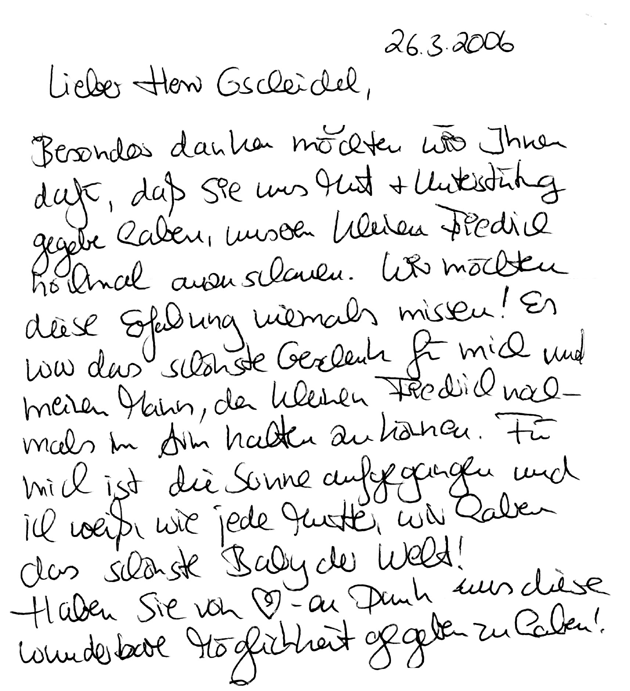 26.3.2006
Lieber Herr Gscheidel,
Besonders danken möchten wir Ihnen
dafür, daß Sie uns Mut + Unterstützung
gegeben haben, unseren kleinen Friedrich
nochmal anzuschauen. Wir möchten
diese Erfahrung niemals missen! Es
war das schönste Geschenk für mich und
meinen Mann, den kleinen Friedrich noch-
mals im Arm halten zu können. Für
mich ist die Sonne aufgegangen und
ich weiß, wie jede Mutter, wir haben
das schönste Baby der Welt!
Haben Sie von ♡-en Dank uns diese
wunderbare Möglichkeit gegeben zu haben!